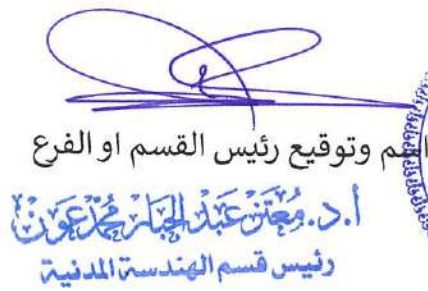 اسم وتوقيع رئيس القسم او الفرع
أ.د. معتز عبد الجبار محمد عون
رئيس قسم الهندسة المدنية